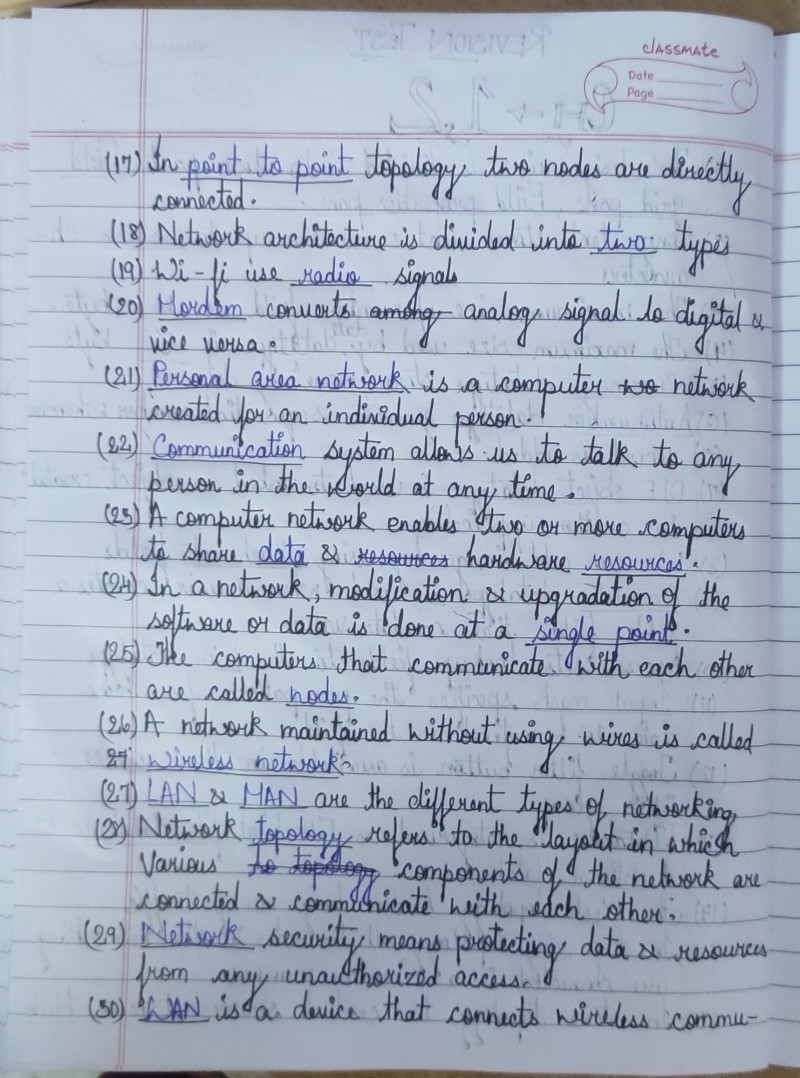 classmate
Date
Page
(17) In point to point topology two nodes are directly
connected.
(18) Network architecture is divided into two types
(19) Wi-fi use radio signals
(20) Mordem converts among analog signal to digital &
vice versa.
(21) Personal area network is a computer two network
created for an individual person.
(22) Communication system allows us to talk to any
person in the world at any time.
(23) A computer network enables two or more computers
to share data & resources hardware resources.
(24) In a network, modification & upgradation of the
software or data is done at a single point.
(25) The computers that communicate with each other
are called nodes.
(26) A network maintained without using wires is called
27 wireless network.
(27) LAN & MAN are the different types of networking
(28) Network topology refers to the layout in which
various to topology components of the network are
connected & communicate with each other.
(29) Network security means protecting data & resources
from any unauthorized access.
(30) WAN is a device that connects wireless commu-